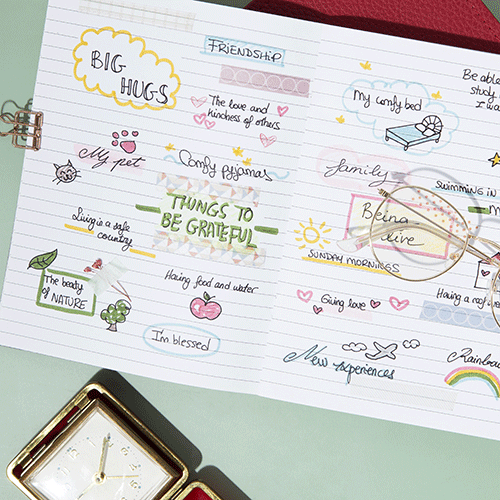 BIG
HUGS
FRIENDSHIP
The love and
kindness of others
My pet
Comfy pyjamas
THINGS TO
BE GRATEFUL
Living is a safe
country
The beauty
of NATURE
Having food and water
I'm blessed
My comfy bed
Be able
study
I wa
family
SWIMMING IN
Being
alive
SUNDAY MORNINGS
Giving love
Having a roof
New experiences
Rainbow